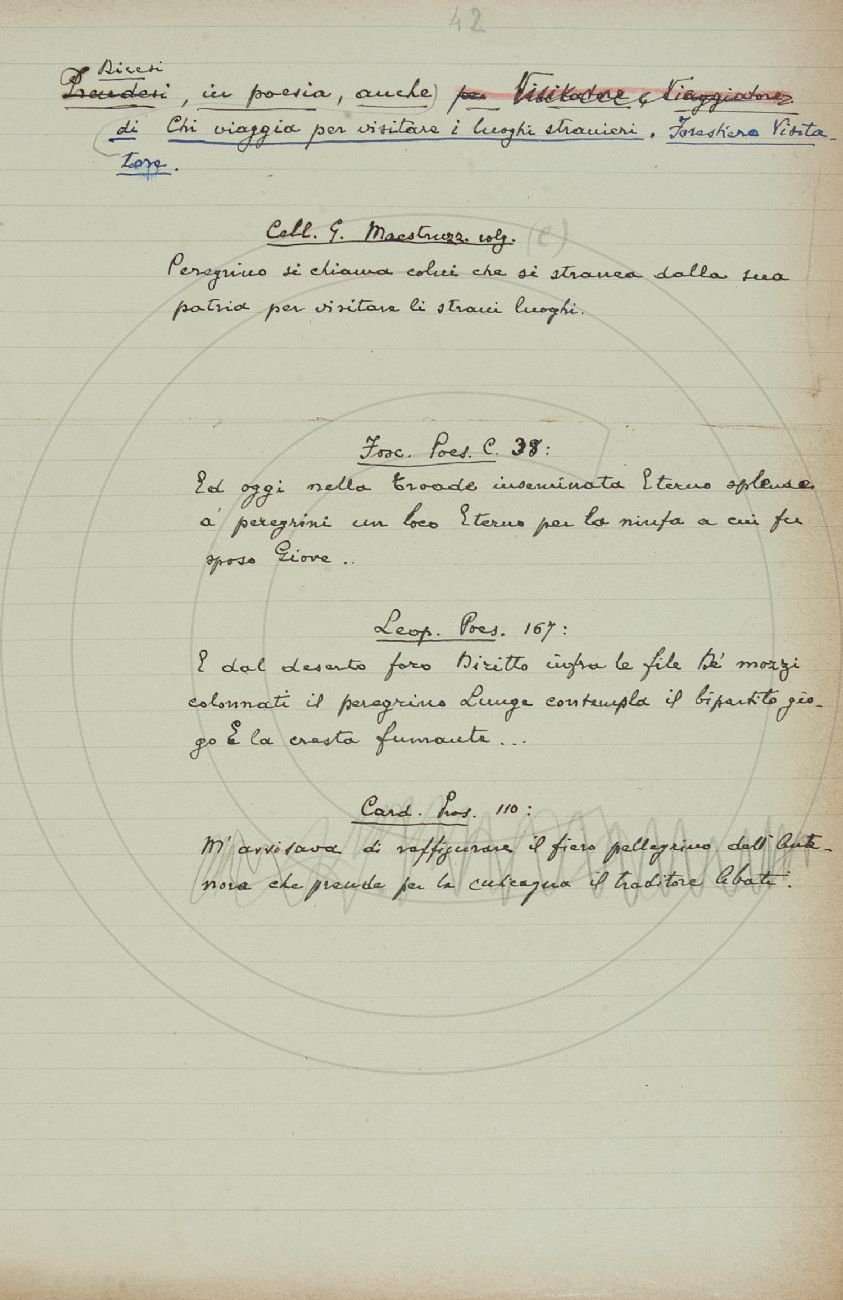 42
Dicesi
Prendesi, in poesia, anche) per Visitatore, Viaggiatore.
di Chi viaggia per visitare i luoghi stranieri. Forestiero Visita-
tore.
Cell. G. Maestruzz. volg. (C)
Peregrino si chiama colui che si stranea dalla sua
patria per visitare li strani luoghi.
Fosc. Poes. C. 38:
Ed oggi nella Troade inseminata Eterno splende
a' peregrini un loco Eterno per la ninfa a cui fu
sposo Giove..
Leop. Poes. 167:
E dal deserto foro Diritto infra le file De' mozzi
colonnati il peregrino Lunge contempla il bipartito gio-
go E la cresta fumante...
Card. Pros. 110:
M'avvisava di raffigurare il fiero pellegrino dell'Ante-
nora che prende per la cuticagna il traditore Abati.